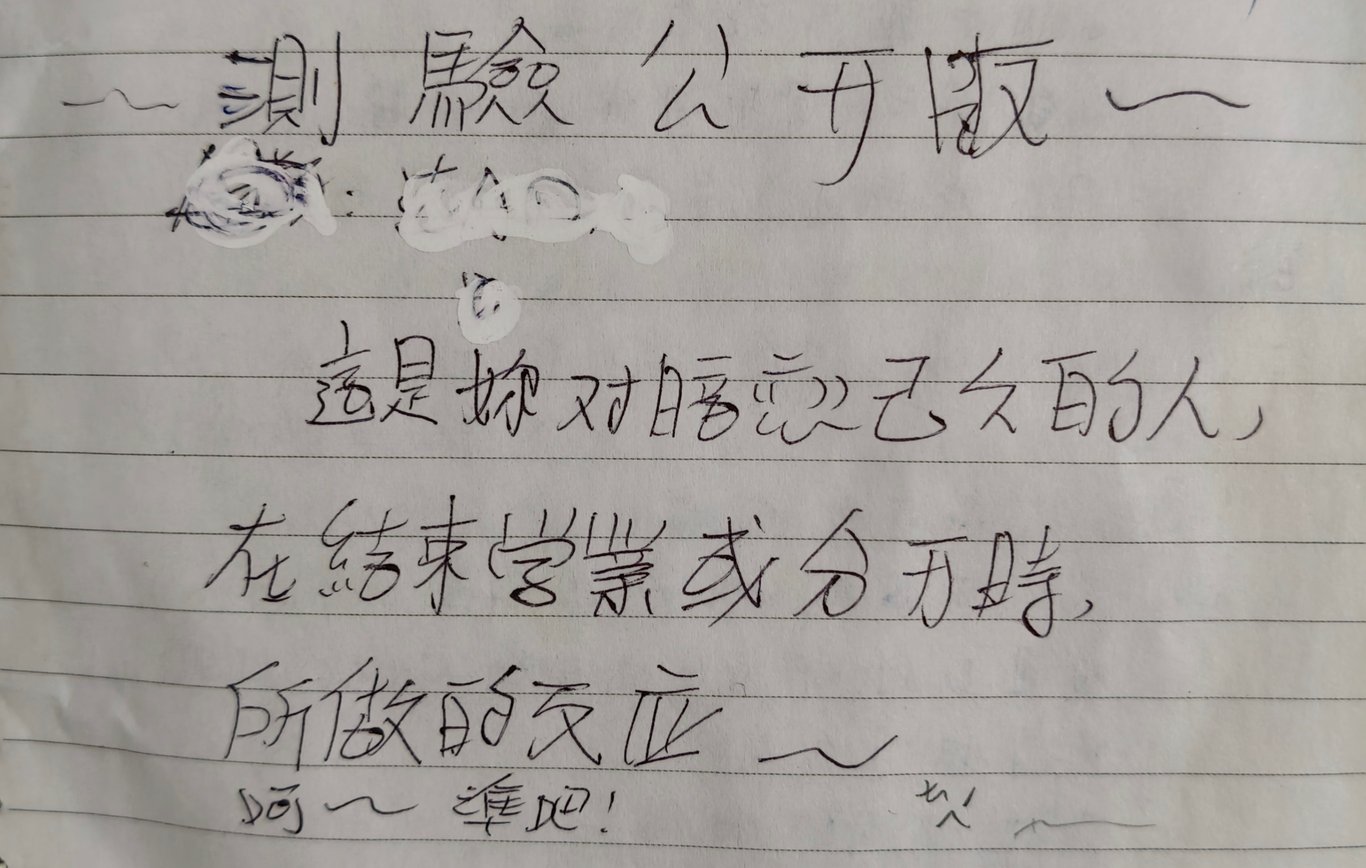 ~測驗公开版~
這是妳对暗恋已久的人,
在結束学業或分开時,
所做的反应~
呵~ 準吧!